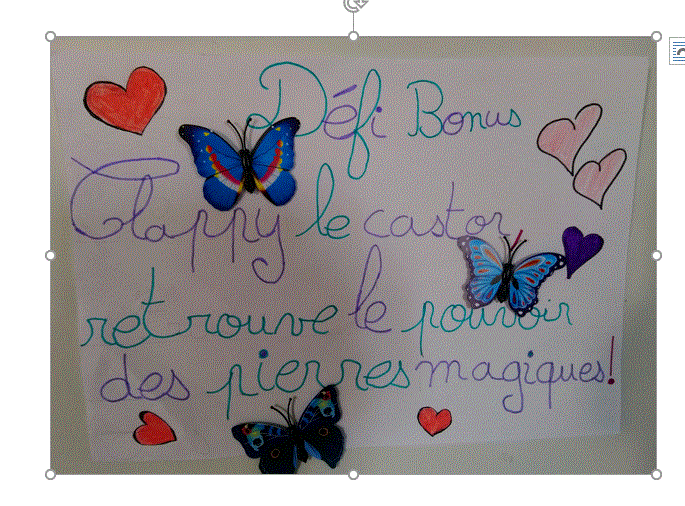 Défi Bonus
Clappy le castor
retrouve le pouvoir
des pierres magiques!